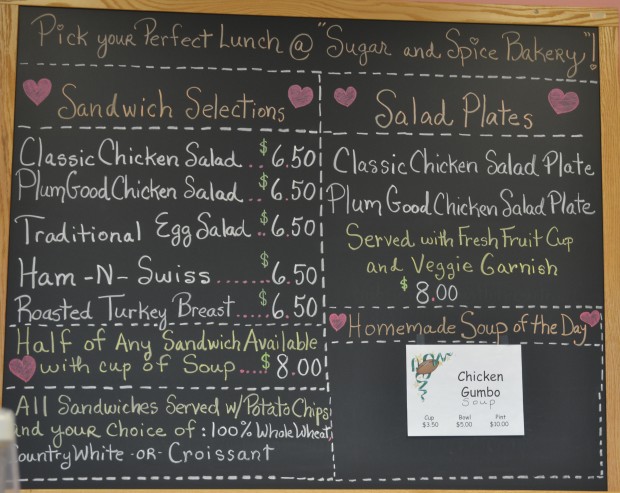 Pick your Perfect Lunch @ "Sugar and Spice Bakery"!
Sandwich Selections
Classic Chicken Salad .. $6.50
Plum Good Chicken Salad .. $6.50
Traditional Egg Salad .. $6.50
Ham -N- Swiss ...... $6.50
Roasted Turkey Breast .... $6.50
Half of Any Sandwich Available
with cup of Soup .... $8.00
All Sandwiches Served w/Potato Chips
and your Choice of : 100% Whole Wheat,
Country White -OR- Croissant
Salad Plates
Classic Chicken Salad Plate
Plum Good Chicken Salad Plate
Served with Fresh Fruit Cup
and Veggie Garnish
$8.00
Homemade Soup of the Day
Chicken
Gumbo
Soup
Cup Bowl Pint
$3.50 $5.00 $10.00